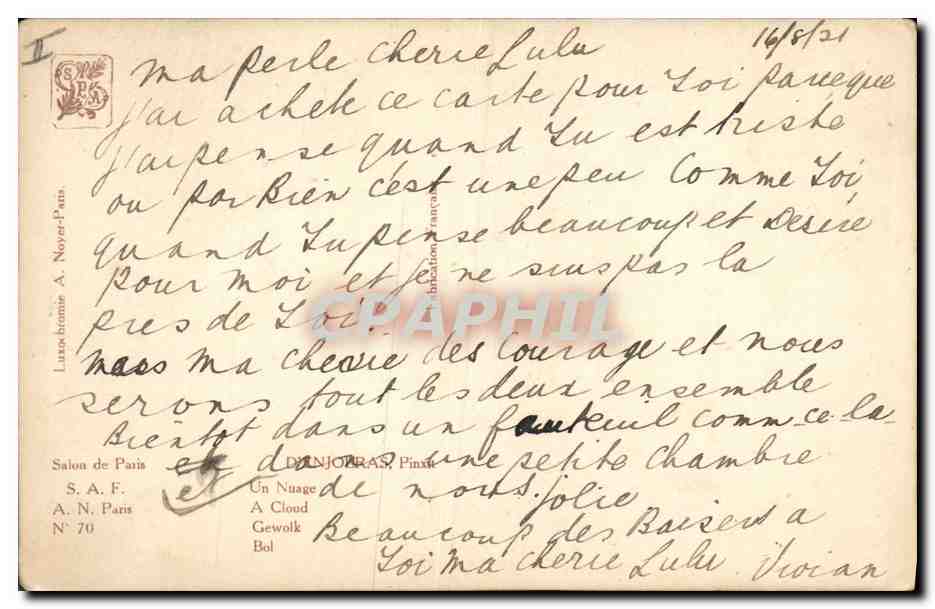 II
16/8/21
SPA
Ma perle cherie Lulu
J'ai achete ce carte pour Toi parceque
J'ai pense quand Tu est triste
ou par Bien c'est une peu Comme Toi
quand Tu pense beaucoup et Desire
Pour moi et Je ne suis pas la
pres de Toi.
Mais Ma Cherie des Courage et nous
serons tout les deux ensemble
Bientot dans un fauteuil comm-ce-la-
et dans une petite Chambre
de nous. Jolie
Beaucoup des Baisers a
Toi Ma Cherie Lulu Vivian
Luxochromie A. Noyer-Paris.
Fabrication Française
CPAPHIL
Salon de Paris
S. A. F.
A. N. Paris
N° 70
Pinxit
Un Nuage
A Cloud
Gewolk
Bol